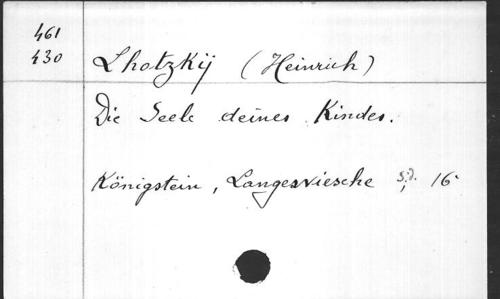 461
430
Lhotzkij (Heinrich)
Die Seele deines Kindes.
Königstein, Langewiesche s.d. 16°